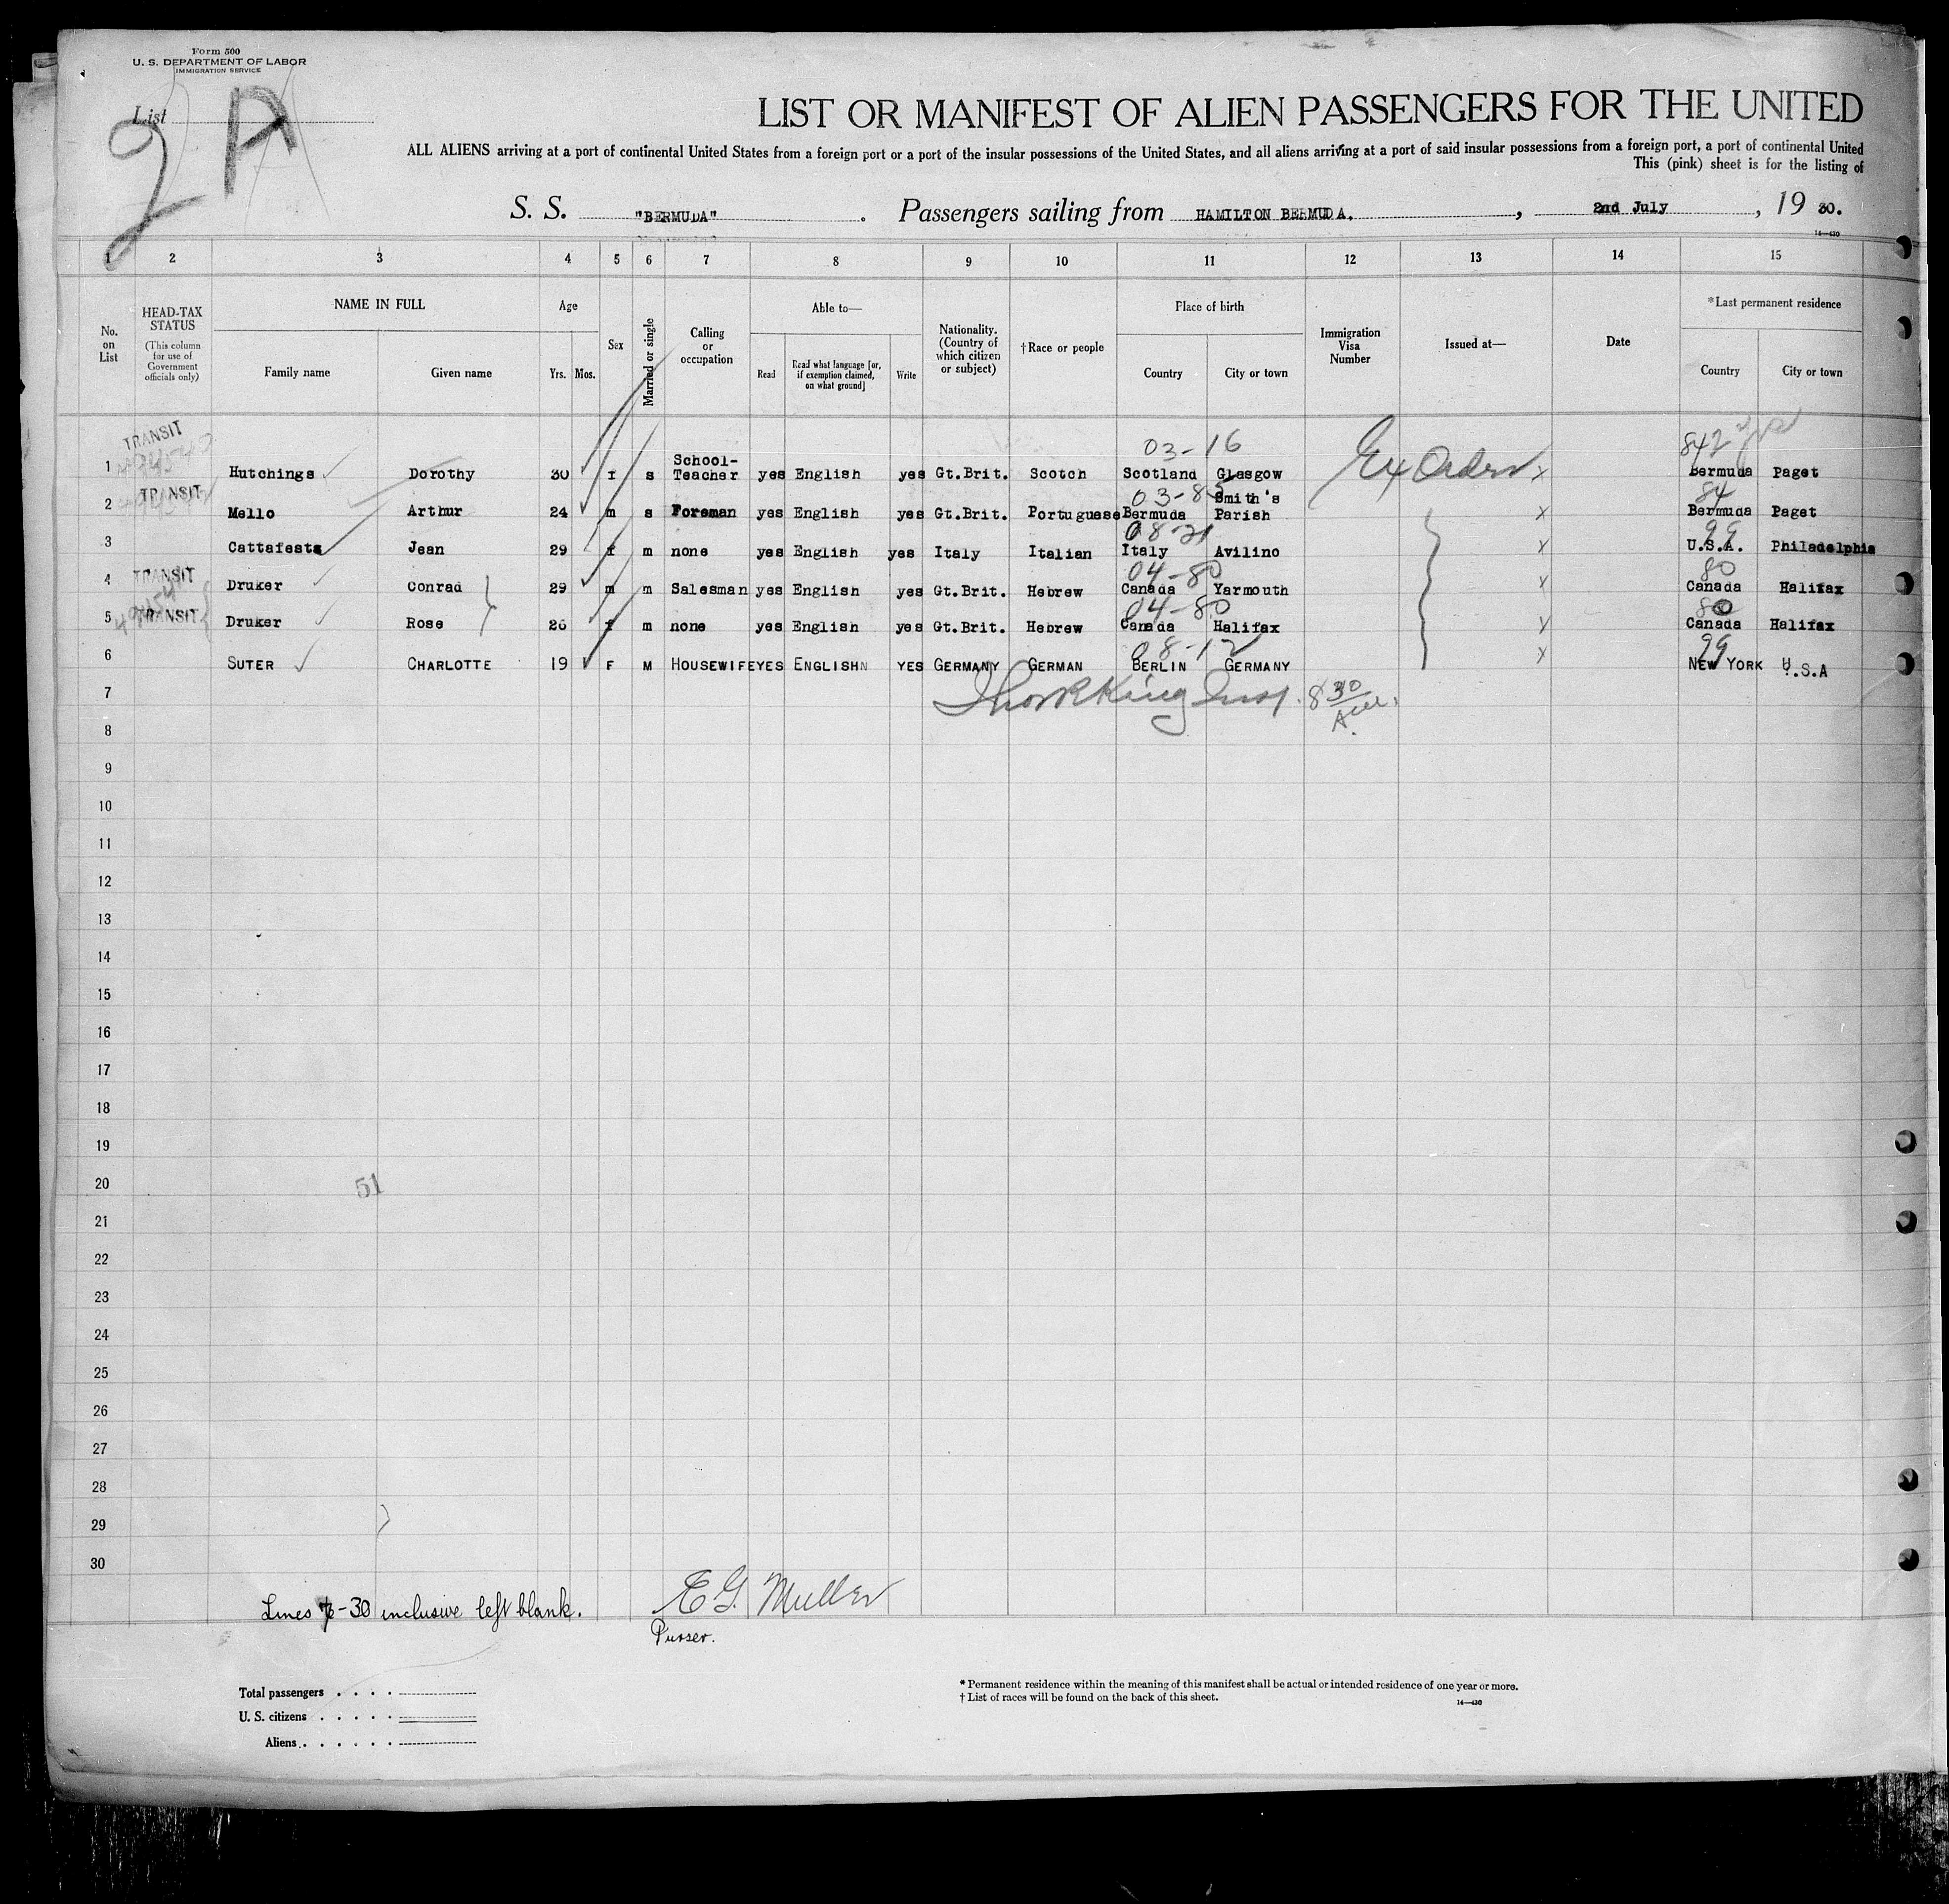 Form 500
U. S. DEPARTMENT OF LABOR
IMMIGRATION SERVICE
List
2 A
LIST OR MANIFEST OF ALIEN PASSENGERS FOR THE UNITED
ALL ALIENS arriving at a port of continental United States from a foreign port or a port of the insular possessions of the United States, and all aliens arriving at a port of said insular possessions from a foreign port, a port of continental United
This (pink) sheet is for the listing of
S. S. "BERMUDA" . Passengers sailing from HAMILTON BERMUDA. , 2nd July , 19 30.
14—430
1 2 3 4 5 6 7 8 9 10 11 12 13 14 15
No. on List
HEAD-TAX STATUS
(This column for use of Government officials only)
NAME IN FULL
Family name Given name
Age
Yrs. Mos.
Sex
Married or single
Calling or occupation
Able to—
Read Read what language [or, if exemption claimed, on what ground] Write
Nationality. (Country of which citizen or subject)
†Race or people
Place of birth
Country City or town
Immigration Visa Number
Issued at—
Date
*Last permanent residence
Country City or town
TRANSIT 03-16 842
1 Hutchings Dorothy 30 f s School-Teacher yes English yes Gt.Brit. Scotch Scotland Glasgow Ex Orders X Bermuda Paget
TRANSIT 03-85 84
2 Mello Arthur 24 m s Foreman yes English yes Gt.Brit. Portuguese Bermuda Smith's Parish X Bermuda Paget
08-21 99
3 Cattafesta Jean 29 f m none yes English yes Italy Italian Italy Avilino X U.S.A. Philadelphia
TRANSIT 04-80 80
4 Druker Conrad 29 m m Salesman yes English yes Gt.Brit. Hebrew Canada Yarmouth X Canada Halifax
TRANSIT 04-80 80
5 Druker Rose 26 f m none yes English yes Gt.Brit. Hebrew Canada Halifax X Canada Halifax
08-12 99
6 SUTER CHARLOTTE 19 F M HOUSEWIFE YES ENGLISHN YES GERMANY GERMAN BERLIN GERMANY X NEW YORK U.S.A
7 King Insp. 8 30 A.M.
8
9
10
11
12
13
14
15
16
17
18
19
20
51
21
22
23
24
25
26
27
28
29
30
Lines 7-30 inclusive left blank. E G. Muller
Purser.
Total passengers . . . .
U. S. citizens . . . . .
Aliens . . . . . .
* Permanent residence within the meaning of this manifest shall be actual or intended residence of one year or more.
† List of races will be found on the back of this sheet.
14—430